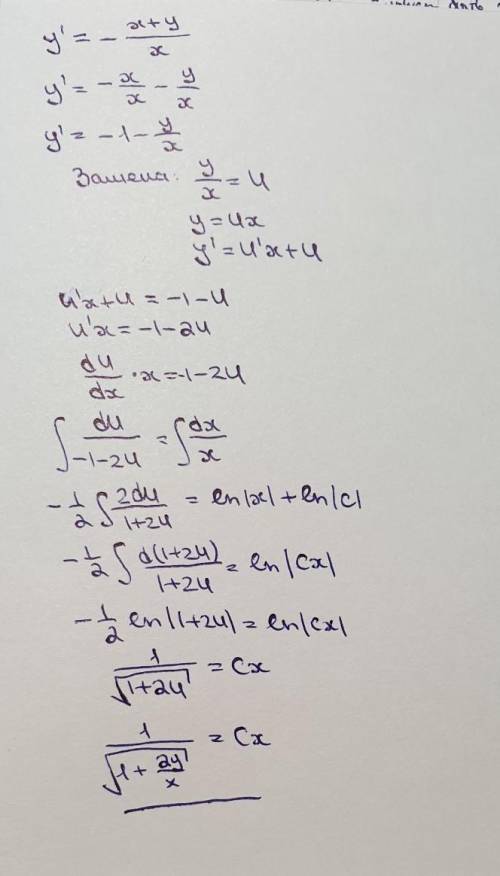 y' = - \frac{x+y}{x}
y' = - \frac{x}{x} - \frac{y}{x}
y' = -1 - \frac{y}{x}
Замена: \frac{y}{x} = u
y = ux
y' = u'x + u
u'x + u = -1 - u
u'x = -1 - 2u
\frac{du}{dx} · x = -1 - 2u
∫ \frac{du}{-1-2u} = ∫ \frac{dx}{x}
- \frac{1}{2} ∫ \frac{2du}{1+2u} = ln|x| + ln|c|
- \frac{1}{2} ∫ \frac{d(1+2u)}{1+2u} = ln|Cx|
- \frac{1}{2} ln|1+2u| = ln|Cx|
\frac{1}{\sqrt{1+2u}} = Cx
\frac{1}{\sqrt{1+\frac{2y}{x}}} = Cx